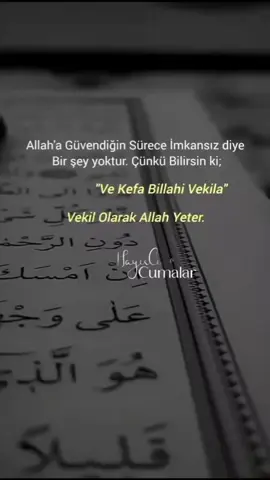 Allah'a Güvendiğin Sürece İmkansız diye
Bir şey yoktur. Çünkü Bilirsin ki;
"Ve Kefa Billahi Vekila"
Vekil Olarak Allah Yeter.
Hayırlı
Cumalar
دُونِ الرَّحْمٰ
اِنْ اَمْسَكَ
عَلٰى وَجْهِ
هُوَ الَّذ۪ى
قَل۪يلًا